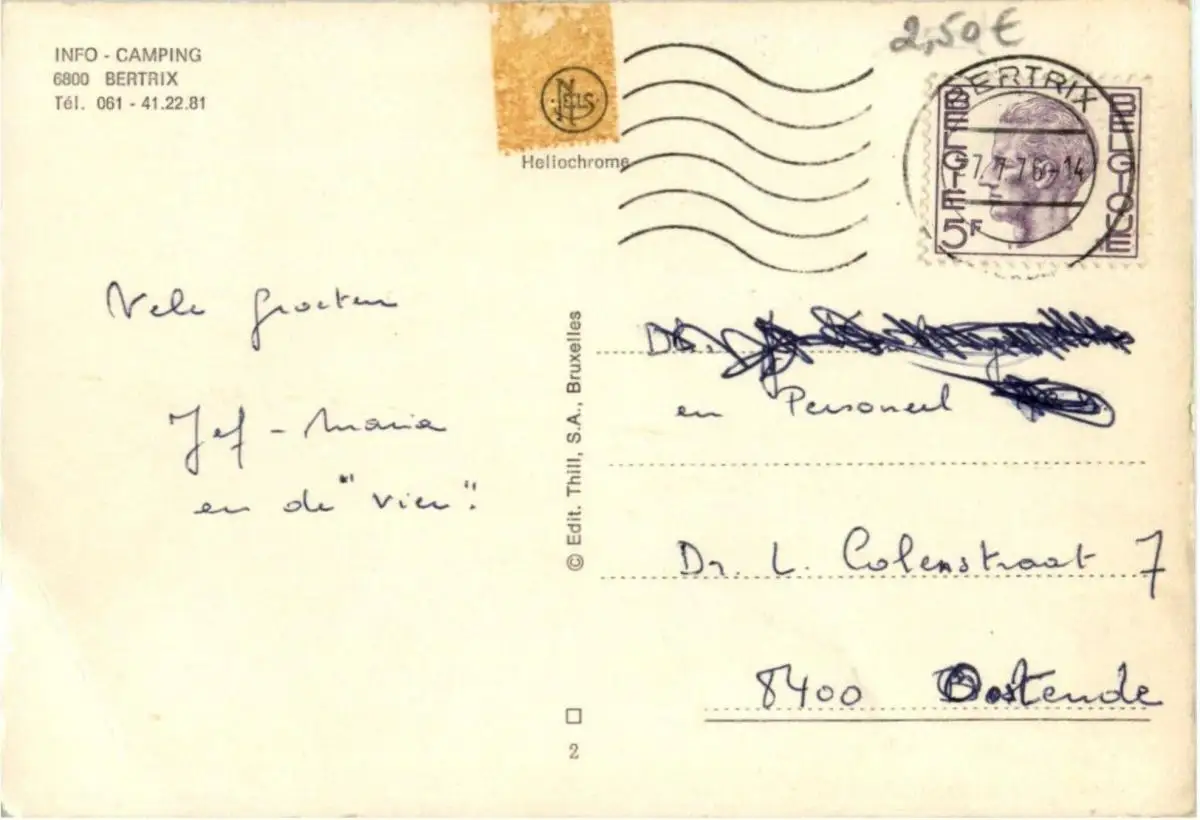 INFO - CAMPING
6800 BERTRIX
Tél. 061 - 41.22.81
NELS
Heliochrome
2,50 €
BERTRIX
BELGIE BELGIQUE
5F
Vele groeten
Jef - Maria
en de "vier"
© Edit. Thill, S.A., Bruxelles
2
en Personeel
Dr. L. Colenstraat 7
8400 Oostende